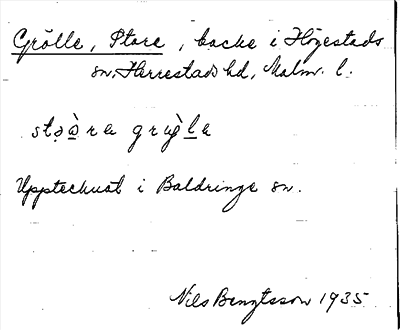 Grölle, Store, backe i Högestads
sn, Herrestads hd, Malm. l.
Upptecknat i Baldringe sn.
Nils Bengtsson 1935